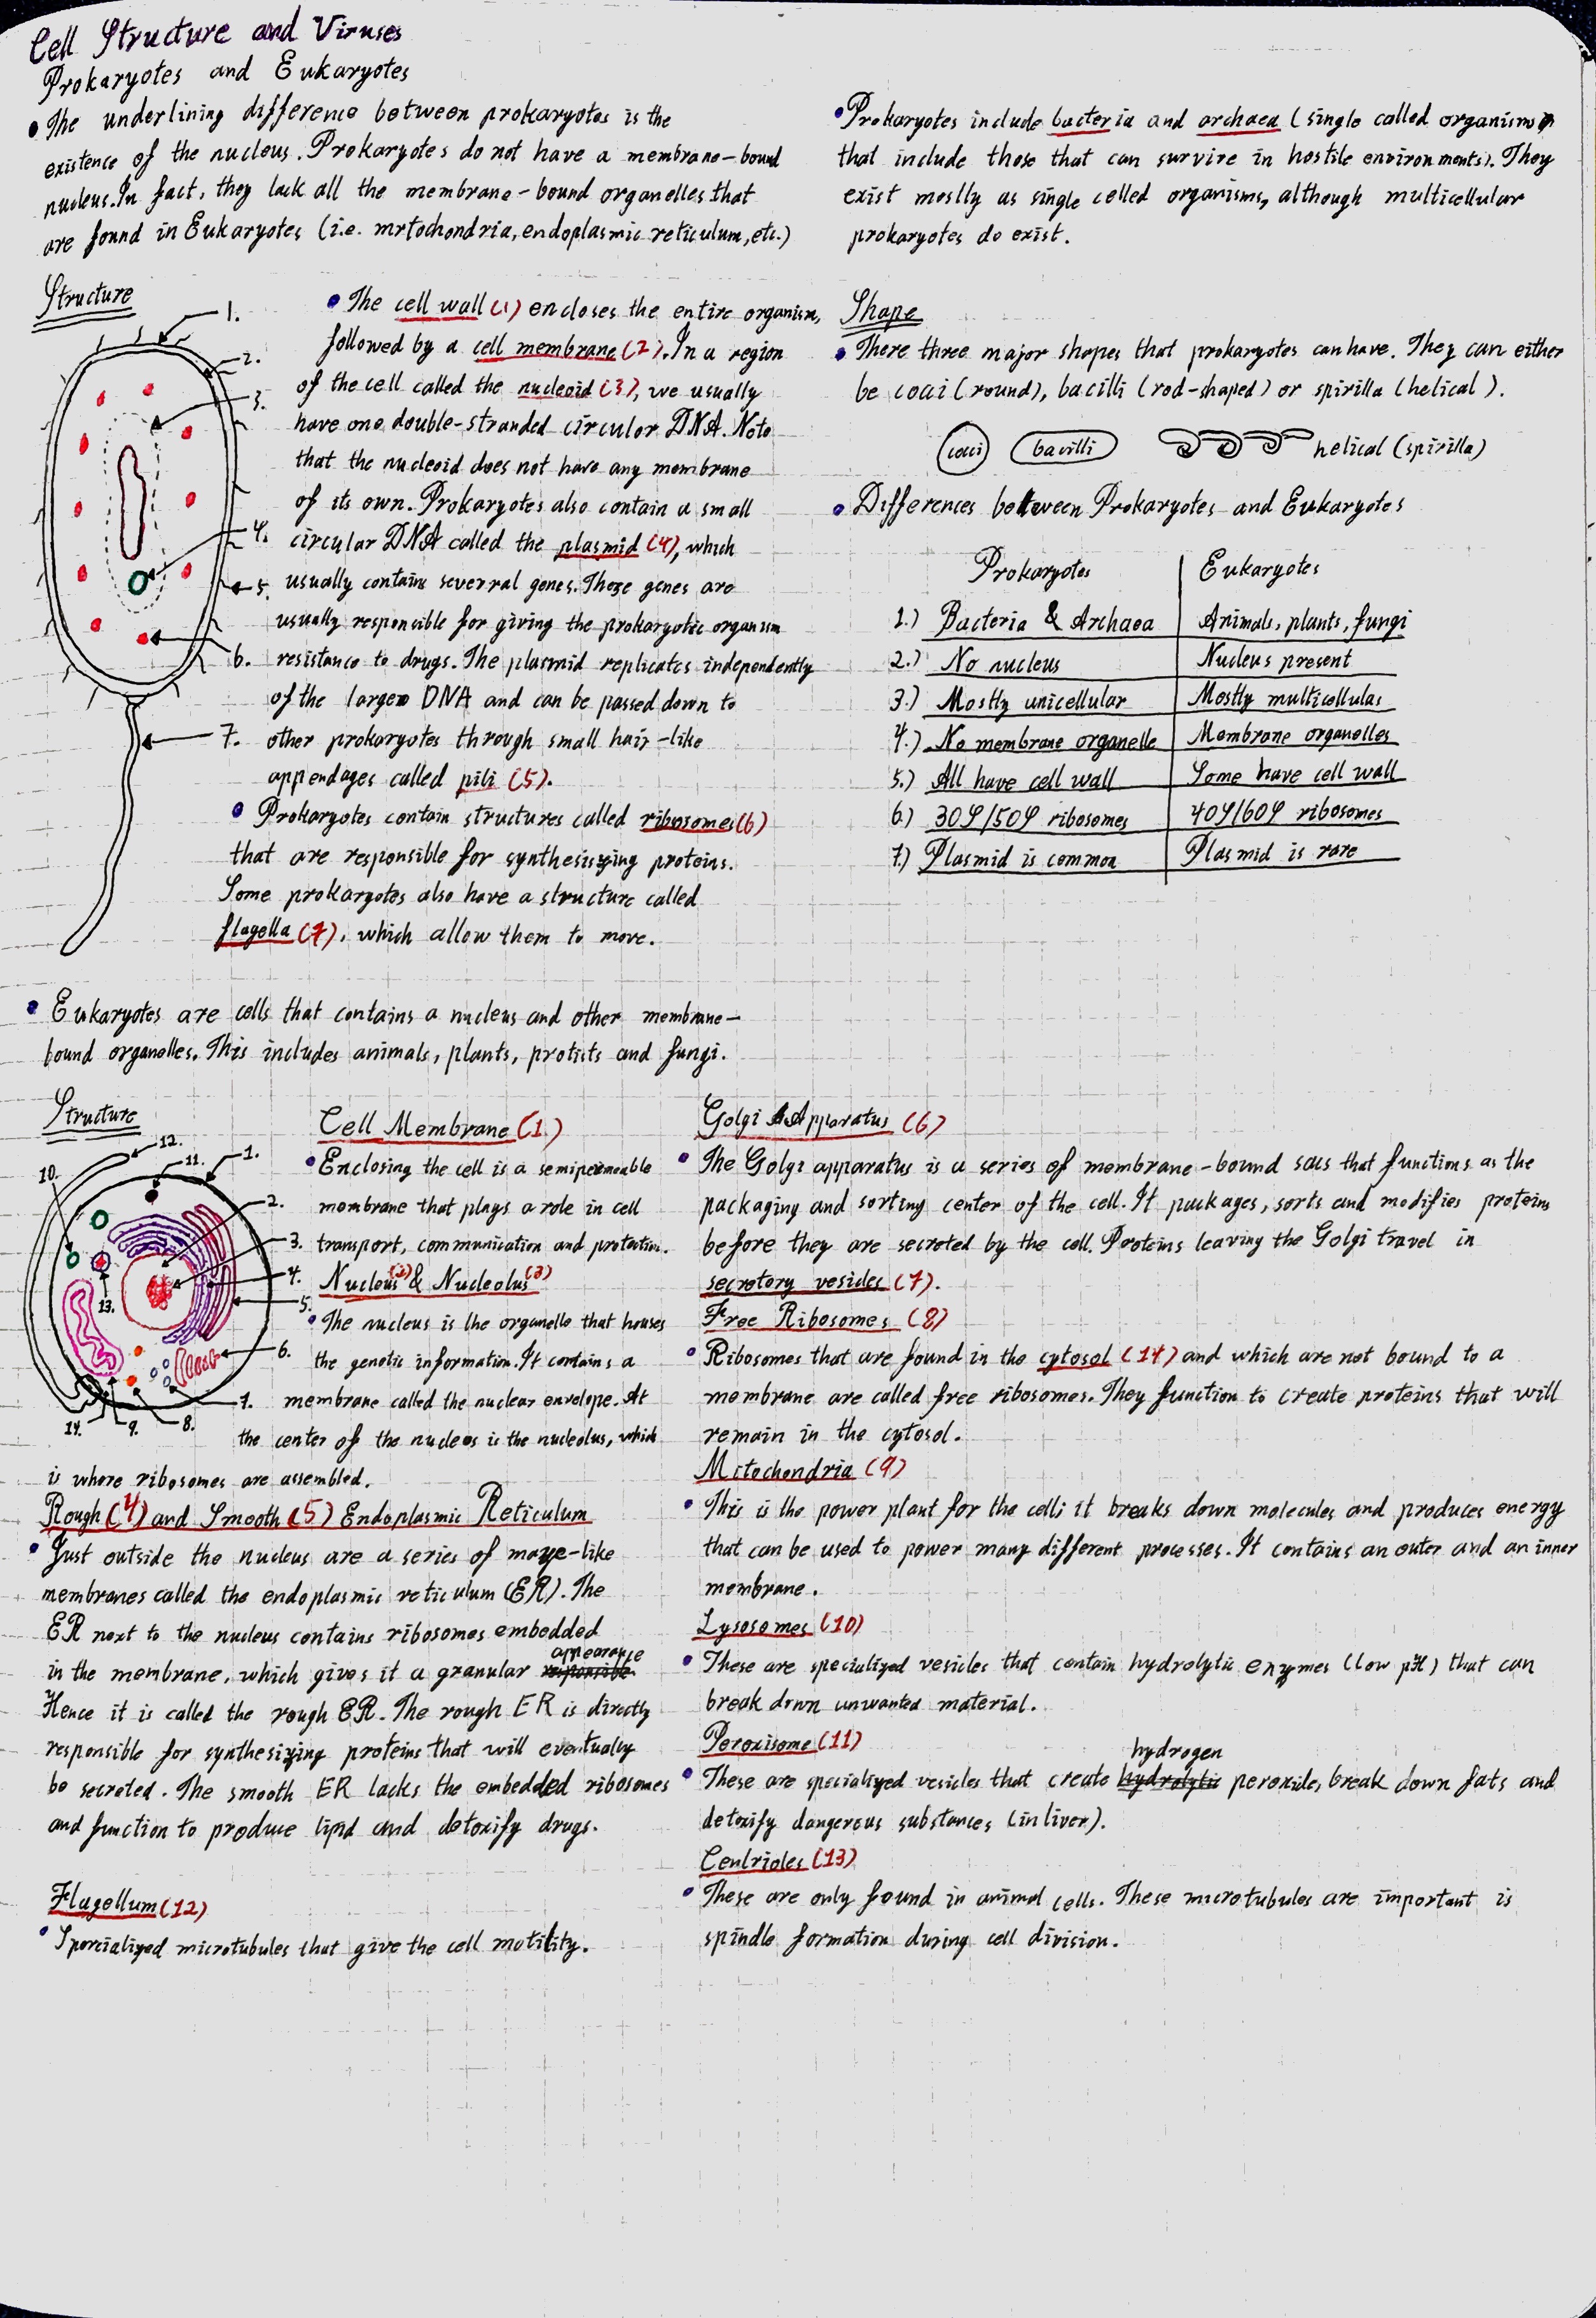 Cell Structure and Viruses
Prokaryotes and Eukaryotes
• The underlining difference between prokaryotes is the
existence of the nucleus. Prokaryotes do not have a membrane-bound
nucleus. In fact, they lack all the membrane-bound organelles that
are found in Eukaryotes (i.e. mitochondria, endoplasmic reticulum, etc.)
• Prokaryotes include bacteria and archaea (single celled organisms
that include those that can survive in hostile environments). They
exist mostly as single celled organisms, although multicellular
prokaryotes do exist.
Structure
1.
2.
3.
4.
5.
6.
7.
• The cell wall (1) encloses the entire organism,
followed by a cell membrane (2). In a region
of the cell called the nucleoid (3), we usually
have one double-stranded circular DNA. Note
that the nucleoid does not have any membrane
of its own. Prokaryotes also contain a small
circular DNA called the plasmid (4), which
usually contains severral genes. These genes are
usually responsible for giving the prokaryotic organism
resistance to drugs. The plasmid replicates independently
of the larger DNA and can be passed down to
other prokaryotes through small hair-like
appendages called pili (5).
• Prokaryotes contain structures called ribosomes (6)
that are responsible for synthesiszing proteins.
Some prokaryotes also have a structure called
flagella (7), which allow them to move.
Shape
• There three major shapes that prokaryotes can have. They can either
be cocci (round), bacilli (rod-shaped) or spirilla (helical).
cocci bacilli helical (spirilla)
• Differences between Prokaryotes and Eukaryotes
Prokaryotes Eukaryotes
1.) Bacteria & Archaea Animals, plants, fungi
2.) No nucleus Nucleus present
3.) Mostly unicellular Mostly multicellular
4.) No membrane organelle Membrane organelles
5.) All have cell wall Some have cell wall
6.) 30S/50S ribosomes 40S/60S ribosomes
7.) Plasmid is common Plasmid is rare
• Eukaryotes are cells that contains a nucleus and other membrane-
bound organelles. This includes animals, plants, protists and fungi.
Structure
12.
11.
1.
10.
2.
3.
4.
5.
13.
6.
7.
14.
9.
8.
Cell Membrane (1)
• Enclosing the cell is a semipermeable
membrane that plays a role in cell
transport, communication and protection.
Nucleus (2) & Nucleolus (3)
• The nucleus is the organelle that houses
the genetic information. It contains a
membrane called the nuclear envelope. At
the center of the nucleus is the nucleolus, which
is where ribosomes are assembled.
Rough (4) and Smooth (5) Endoplasmic Reticulum
• Just outside the nucleus are a series of maze-like
membranes called the endoplasmic reticulum (ER). The
ER next to the nucleus contains ribosomes embedded
in the membrane, which gives it a granular responsible appearance
Hence it is called the rough ER. The rough ER is directly
responsible for synthesizing proteins that will eventually
be secreted. The smooth ER lacks the embedded ribosomes
and function to produce lipid and detoxify drugs.
Flagellum (12)
• Sporcialized microtubules that give the cell motility.
Golgi Apparatus (6)
• The Golgi apparatus is a series of membrane-bound sacs that functions as the
packaging and sorting center of the cell. It packages, sorts and modifies proteins
before they are secreted by the cell. Proteins leaving the Golgi travel in
secretory vesicles (7).
Free Ribosomes (8)
• Ribosomes that are found in the cytosol (14) and which are not bound to a
membrane are called free ribosomes. They function to create proteins that will
remain in the cytosol.
Mitochondria (9)
• This is the power plant for the cell; it breaks down molecules and produces energy
that can be used to power many different processes. It contains an outer and an inner
membrane.
Lysosomes (10)
• These are specialized vesicles that contain hydrolytic enzymes (low pH) that can
break down unwanted material.
Peroxisome (11)
• These are specialized vesicles that create hydrolytic hydrogen peroxide, break down fats and
detoxify dangerous substances (in liver).
Centrioles (13)
• These are only found in animal cells. These microtubules are important is
spindle formation during cell division.